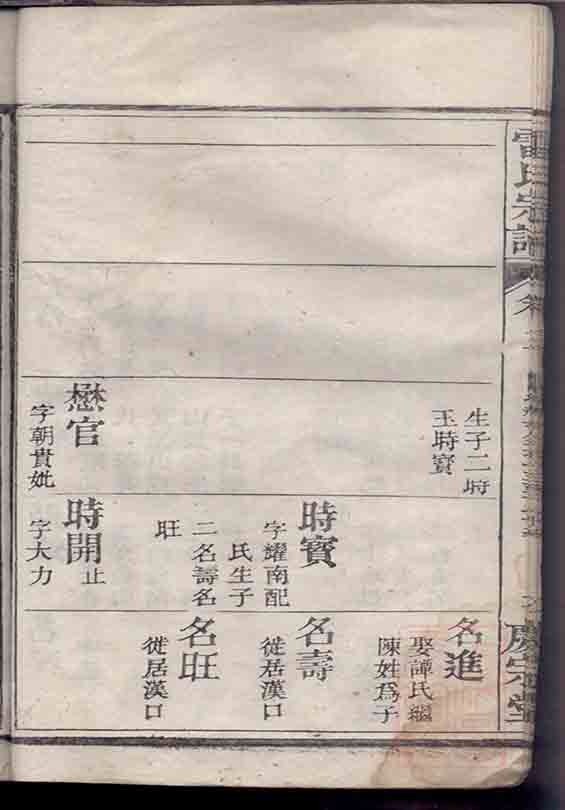 雷氏宗譜
卷
慶宗堂
生子二時
玉時寳
懋官
字朝貴妣
時寳
字耀南配
氏生子
二名壽名
旺
時開止
字大力
名進
娶譚氏繼
陳姓為子
名壽
徙居漢口
名旺
徙居漢口